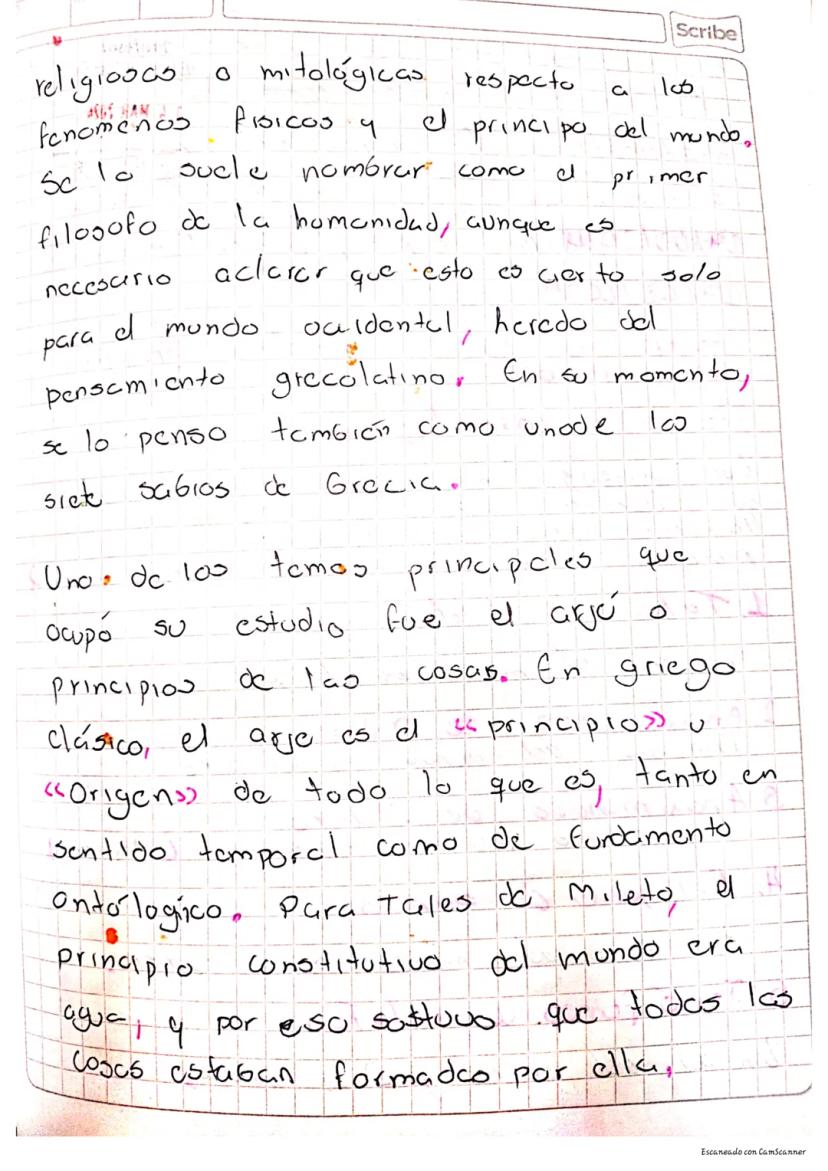 Scribe
religiosas o mitológicas respecto a los
fenomenos fisicos y el principo del mundo.
Se lo suele nombrar como el primer
filosofo de la humanidad, aunque es
necesario aclarar que esto es cierto solo
para el mundo occidental, heredo del
pensamiento grecolatino. En su momento,
se lo penso también como unode los
siete sabios de Grecia.
Uno de los temas principales que
ocupó su estudio fue el arjé o
principios de las cosas. En griego
clásico, el arje es el «principio» u
«Origen» de todo lo que es, tanto en
sentido temporal como de fundamento
ontólogico. Para Tales de Mileto, el
principio constitutivo del mundo era
agua, y por eso sostuvo que todas las
cosas estaban formadas por ella.
Escaneado con CamScanner